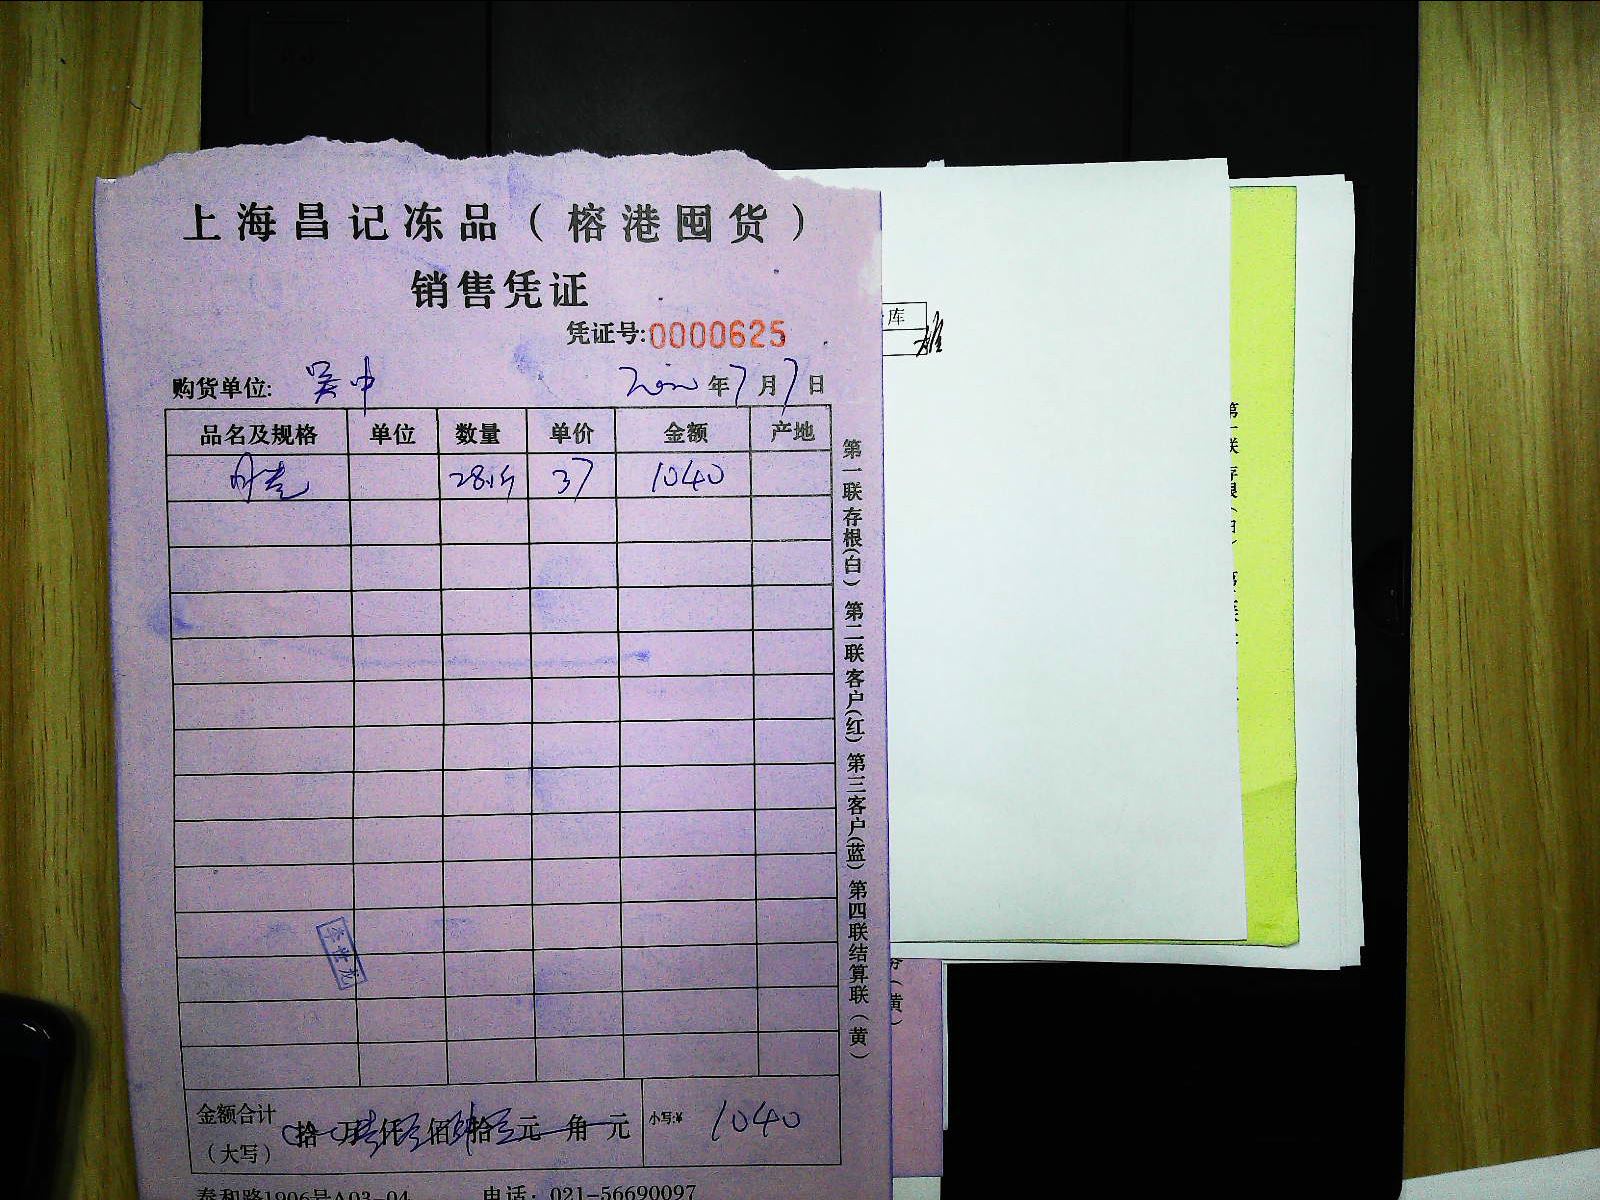 上海昌记冻品（榕港囤货）
销售凭证
凭证号:0000625
购货单位: 吴中 年7月7日
品名及规格 单位 数量 单价 金额 产地
37 1040
金额合计（大写） 拾 万 仟 佰 拾 元 角 元 小写:¥ 1040
泰和路1906号A03-04 电话：021-56690097
第一联存根(白) 第二联客户(红) 第三客户(蓝) 第四联结算联(黄)
李世龙
库
第一联存根(白)
(黄)